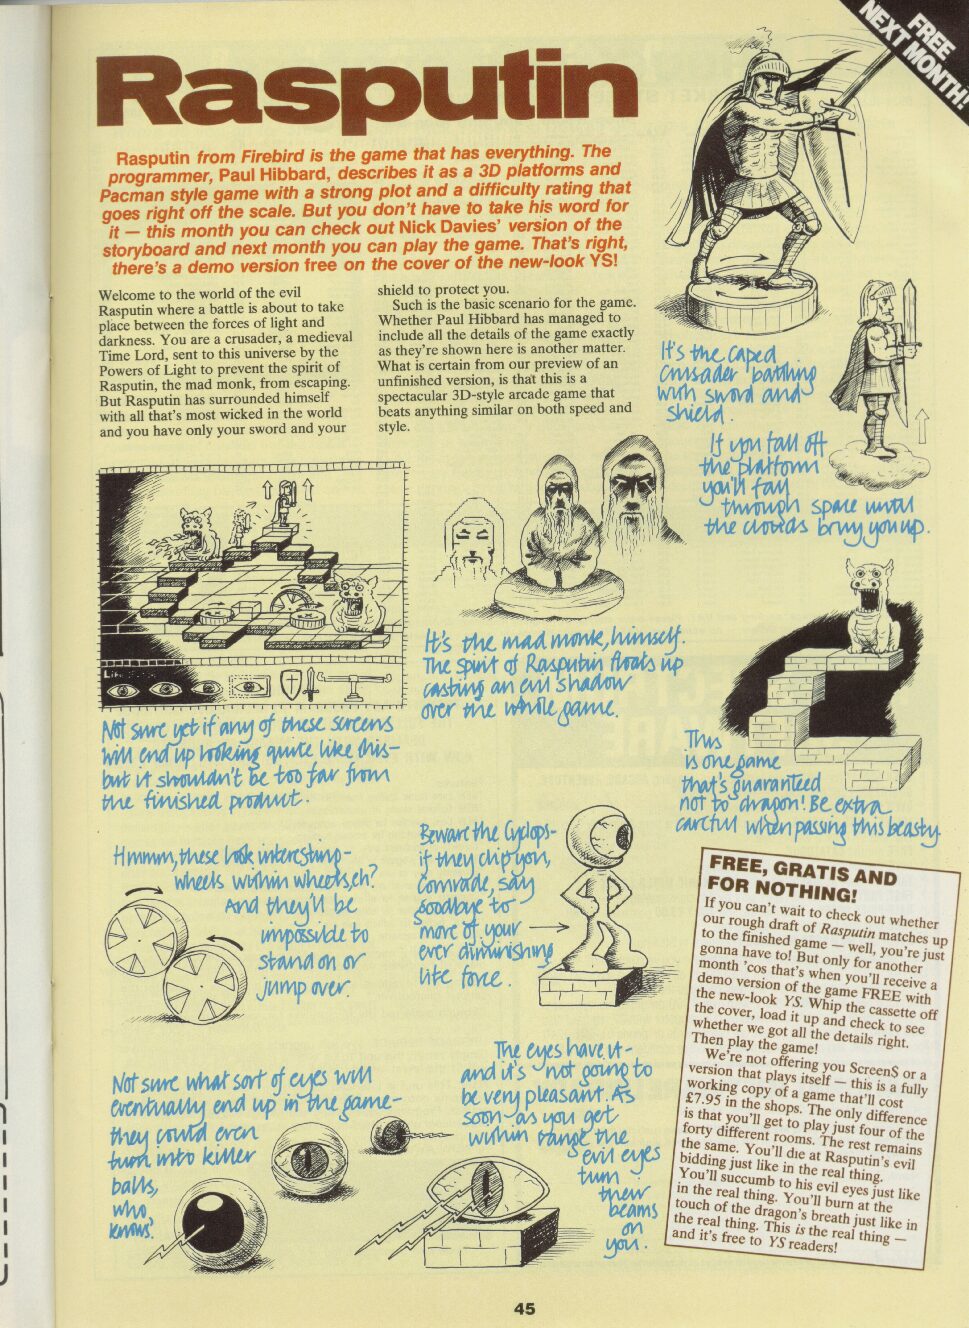 FREE
NEXT MONTH!
Rasputin
Rasputin from Firebird is the game that has everything. The
programmer, Paul Hibbard, describes it as a 3D platforms and
Pacman style game with a strong plot and a difficulty rating that
goes right off the scale. But you don't have to take his word for
it — this month you can check out Nick Davies' version of the
storyboard and next month you can play the game. That's right,
there's a demo version free on the cover of the new-look YS!
Welcome to the world of the evil
Rasputin where a battle is about to take
place between the forces of light and
darkness. You are a crusader, a medieval
Time Lord, sent to this universe by the
Powers of Light to prevent the spirit of
Rasputin, the mad monk, from escaping.
But Rasputin has surrounded himself
with all that's most wicked in the world
and you have only your sword and your
shield to protect you.
Such is the basic scenario for the game.
Whether Paul Hibbard has managed to
include all the details of the game exactly
as they're shown here is another matter.
What is certain from our preview of an
unfinished version, is that this is a
spectacular 3D-style arcade game that
beats anything similar on both speed and
style.
It's the caped
Crusader battling
with sword and
shield.
If you fall off
the platform
you'll fall
through space until
the clouds bring you up.
Life
Not sure yet if any of these screens
will end up looking quite like this-
but it shouldn't be too far from
the finished product.
It's the mad monk, himself.
The Spirit of Rasputin floats up
casting an evil shadow
over the whole game.
This
is one game
that's guaranteed
not to dragon! Be extra
careful when passing this beasty.
Hmmm, these look interesting-
wheels within wheels, eh?
And they'll be
impossible to
stand on or
jump over.
Beware the Cyclops-
if they chip you,
Comrade, say
goodbye to
more of your
ever diminishing
life force.
FREE, GRATIS AND
FOR NOTHING!
If you can't wait to check out whether
our rough draft of Rasputin matches up
to the finished game — well, you're just
gonna have to! But only for another
month 'cos that's when you'll receive a
demo version of the game FREE with
the new-look YS. Whip the cassette off
the cover, load it up and check to see
whether we got all the details right.
Then play the game!
We're not offering you Screen$ or a
version that plays itself — this is a fully
working copy of a game that'll cost
£7.95 in the shops. The only difference
is that you'll get to play just four of the
forty different rooms. The rest remains
the same. You'll die at Rasputin's evil
bidding just like in the real thing.
You'll succumb to his evil eyes just like
in the real thing. You'll burn at the
touch of the dragon's breath just like in
the real thing. This is the real thing —
and it's free to YS readers!
Not sure what sort of eyes will
eventually end up in the game-
they could even
turn into killer
balls,
who
knows?
The eyes have it-
and it's not going to
be very pleasant. As
soon as you get
within range the
evil eyes
turn
their
beams
on
you.
45